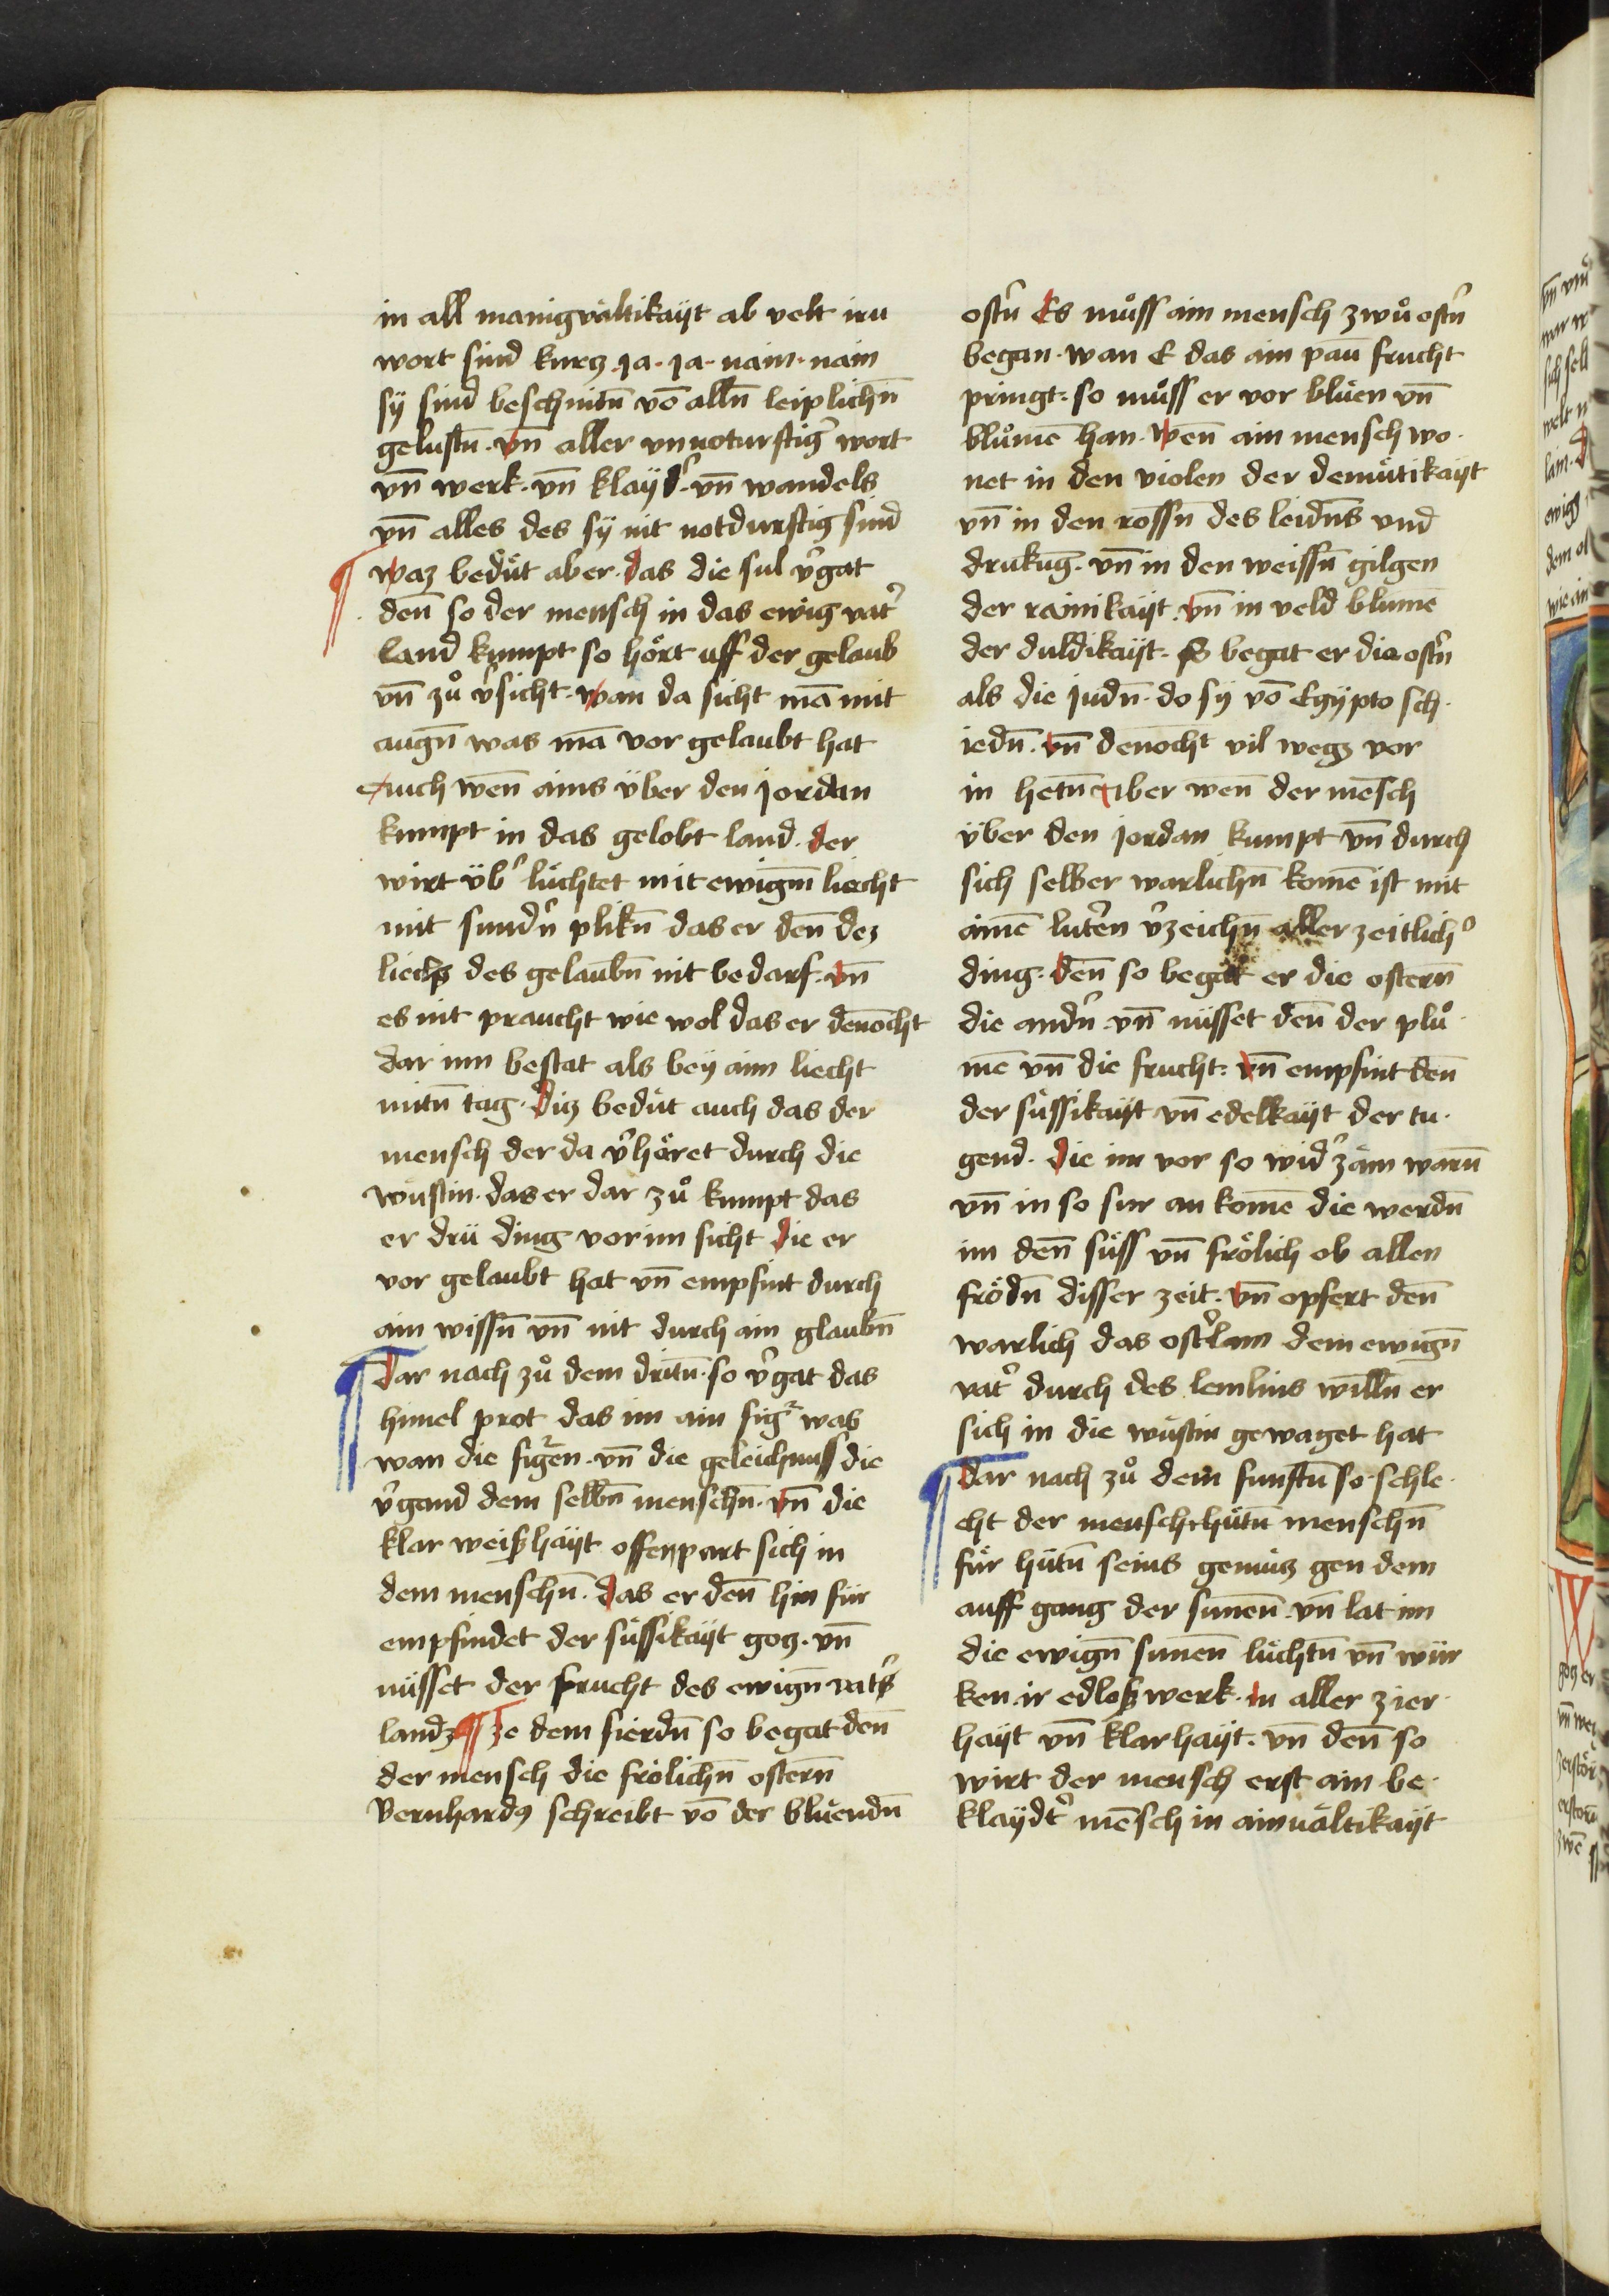 in all manigvaltikaÿt ab velt irn
wort sind kurcz ja · ja · nain · nain
sÿ sind beschnitn̄ vō alln̄ leiplichn̄
gelustn̄ · vn̄ aller vnnoturftigˀ wort
vn̄ werk · vn̄ klaÿdˀ · vn̄ wandels
vn̄ alles des sÿ nit notdurftig sind
¶ waz bedu̍t aber · das die sul vˀgat
den̄ so der mensch in das ewig vatˀ
land kumpt so hört uff der gelaub
vn̄ zuͦ vˀsicht · wan da sicht mā mit
augn̄ was mā vor gelaubt hat
Auch wen̄ ains über den jordan
kumpt in das gelobt land · der
wirt übˀ lüchtet mit ewigm̄ liecht
mit sundˀn plikn̄ das er den̄ dez
liechcz des gelaubn̄ nit bedarf · vn̄
es nit praucht wie wol das er den̄ocht
dar inn bestat als beÿ aim liecht
mitn̄ tag · diz bedüt auch das der
mensch der da vˀhöret durch die
wüstin · das er dar zuͦ kumpt das
er drü ding vor im sicht die er
vor gelaubt hat vn̄ empfint durch
ain wissn̄ vn̄ nit durch ain glaubn̄
¶ Dar nach zuͦ dem dritn̄ · so vˀgat das
himel prot das im ain figˀ was
wan die figˀen · vn̄ die geleichnuss die
vˀgand dem selbn̄ menschn̄ · vn̄ die
klar weißhaÿt offenpart sich in
dem menschn̄ · das er den̄ hin für
empfindet der süssikaÿt gocz · vn̄
nüsset der frucht des ewign̄ vatˀs
landz ¶ ze dem fierdn̄ so begat den̄
der mensch die frölichn̄ ostern̄
Bernhardꝰ schreibt vō der blüendn̄
ostˀn Es muͦss ain mensch zwuͦ ostˀn
began · wan E das ain paū frucht
pringt · so muͦss er vor blüen vn̄
bluͦmē han · wen̄ ain mensch wo·
net in den violen der demütikaÿt
vn̄ in den rossn̄ des leidn̄s und
drukūg · vn̄ in den weissn̄ gilgen
der rainikaÿt · vn̄ in veld blumē
der duldikaÿt · So begat er die ostˀn
als die judn̄ · do sÿ vō Egÿpto sch·
iedn̄ · vn̄ den̄ocht vil wegz vor
in hetn̄ Aber wen̄ der mēsch
über den jordan kumpt vn̄ durch
sich selber warlichn̄ komē ist mit
aimē lutˀen vˀzeichn̄ aller zeitlichˀ
ding · den̄ so begat er die ostern̄
die andˀn · vn̄ nüsset den̄ der pluͦ·
mē vn̄ die frucht · vn̄ empfint den̄
der süssikaÿt vn̄ edelkaÿt der tu·
gend · die im vor so widˀzäm warn̄
vn̄ in so sur an komē die werdn̄
im den̄ süss vn̄ frölich ob allen
frödn̄ disser zeit · vn̄ opfert den̄
warlich das ostˀlam dem ewign̄
vatˀ durch des lemlins willn̄ er
sich in die wüstin gewaget hat
¶ Dar nach zuͦ dem funftn̄ so · schle·
cht der mensch hütn̄ menschn̄
für hütn̄ seins gemücz gen dem
auff gang der sunen̄ · vn̄ lat im
die ewign̄ sunen̄ lüchtn̄ vn̄ wür
ken ir edloß werk · in aller zier·
haÿt vn̄ klarhaÿt · vn̄ den̄ so
wirt der mensch erst ain be·
klaÿdtˀ mēsch in ainualtikaÿt